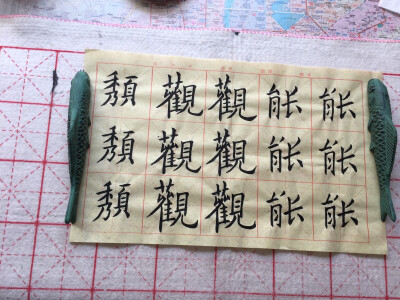 能能能
能能能
觀觀觀
觀觀觀
頽頽頽